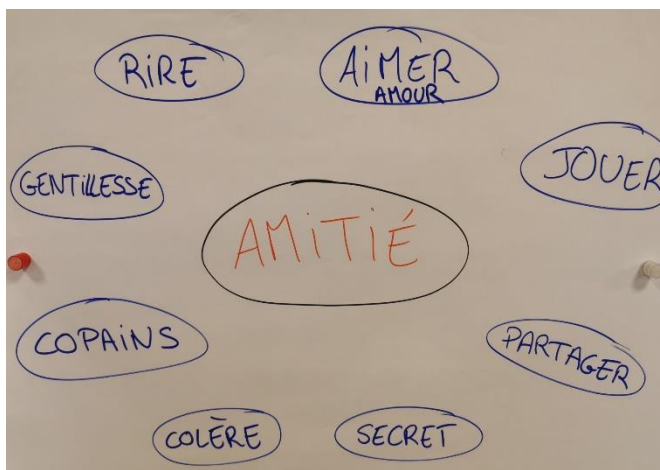 RIRE
AIMER
AMOUR
JOUER
GENTILLESSE
AMITIÉ
COPAINS
PARTAGER
COLÈRE
SECRET